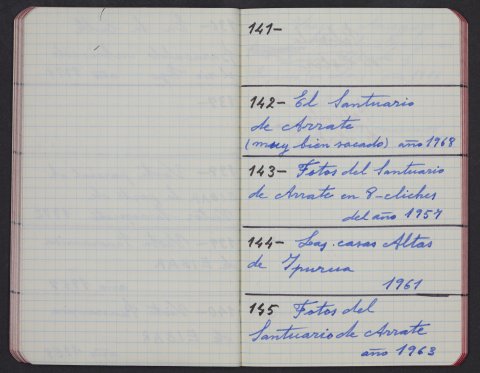 141-
142- El Santuario
de Arrate
(muy bien sacado) año 1968
143- Fotos del Santuario
de Arrate en 8-cliches
del año 1957
144- Las casas Altas
de Ipurua
1961
145 Fotos del
Santuario de Arrate
año 1963